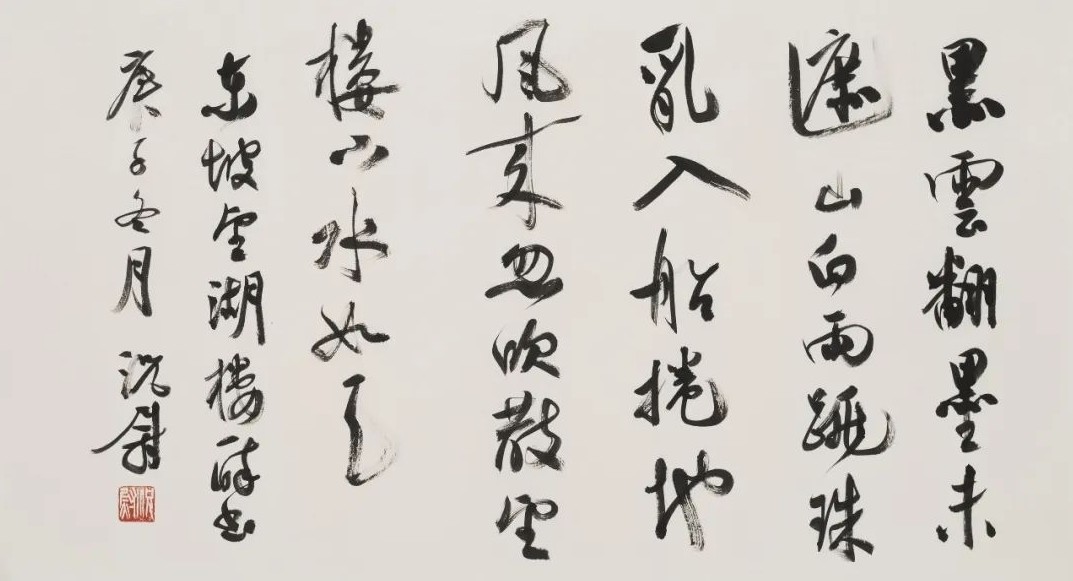 黑雲翻墨未
遮山白雨跳珠
亂入船捲地
風来忽吹散望
楼下水如天
东坡望湖楼醉书
庚子冬月 況尉